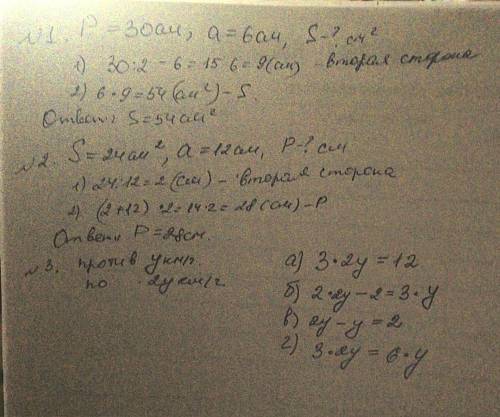 №1. P = 30см, a = 6см, S - ? см²
1) 30:2 - 6 = 15 6 = 9(см) - вторая сторона
2) 6 • 9 = 54 (см²) - S.
Ответ: S = 54см²
№2. S = 24см², a = 12см, P - ? см
1) 24:12 = 2 (см) - вторая сторона
2) (2+12) • 2 = 14 • 2 = 28 (см) - P
Ответ: P = 28см.
№3. против y км/ч.
по 2y км/ч
а) 3 • 2y = 12
б) 2 • 2y - 2 = 3 • y
в) 2y - y = 2
г) 3 • 2y = 6 • y